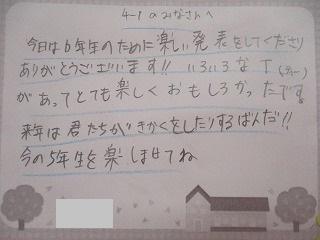 4-1のみなさんへ
今日は6年生のために楽しい発表をしてくださり
ありがとうございます!! いろいろなT(ティー)
があってとても楽しくおもしろかったです。
来年は君たちがきかくをしたりするばんだ!!
今の5年生を楽しませてね